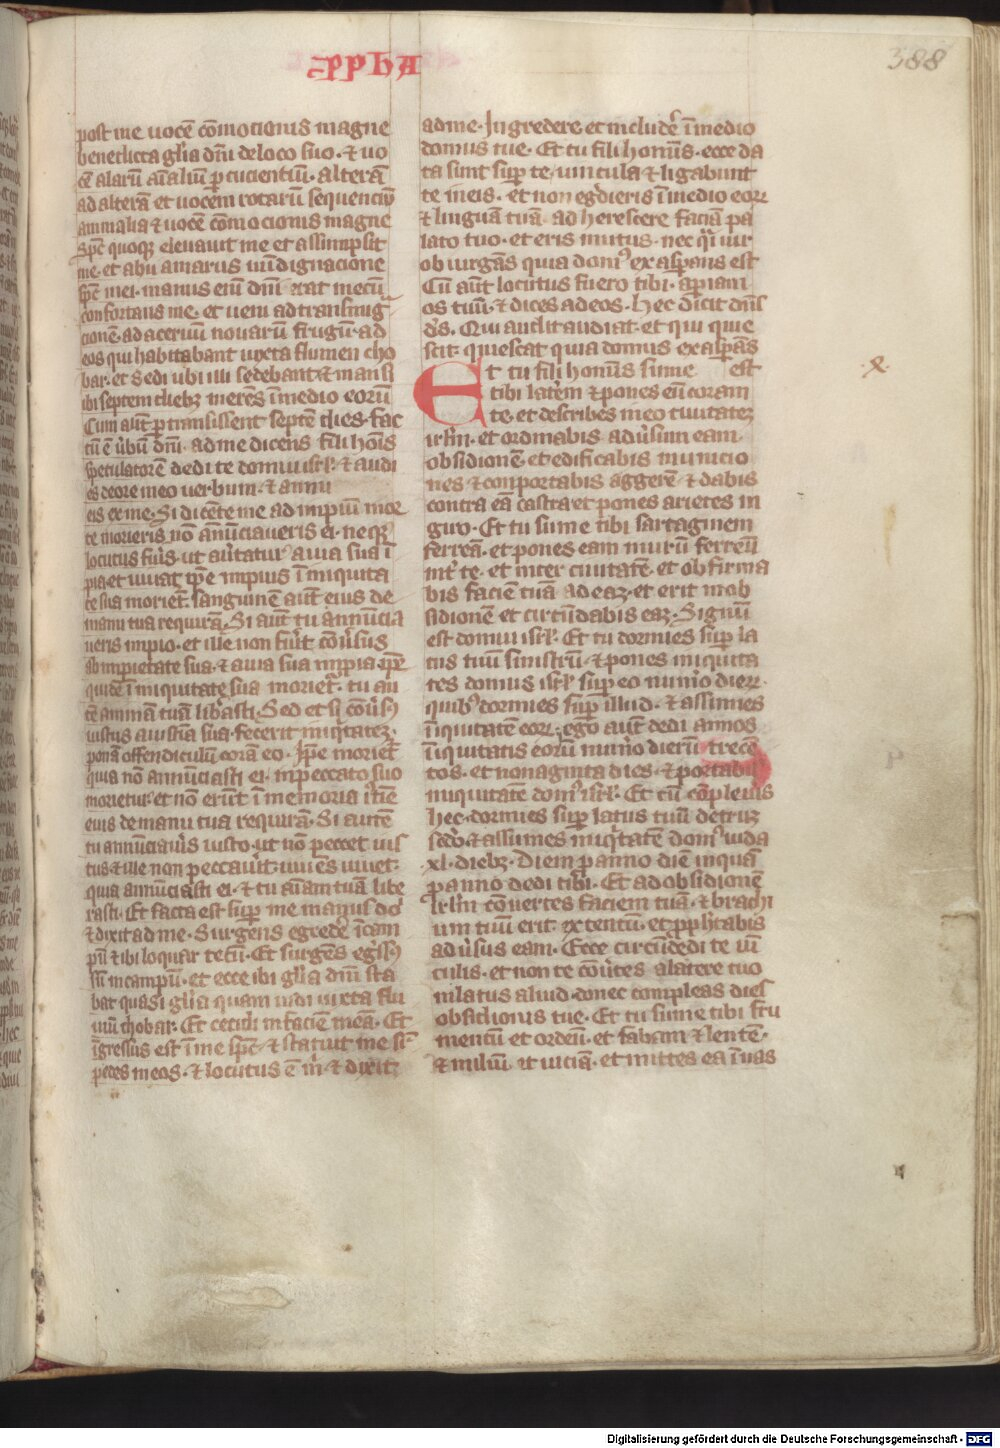 ꝓphA
388
post me uocē cōmocionis magne
benedicta gl̄ia dnī de loco suo · ⁊ uo
cē alarū aīaliū ꝑcucientiū · alterā
ad alterā et uocem rotarū sequenciū
animalia ⁊ uocē cōmocionis magne
Spc̄ quoqꝫ eleuauit me et assumpsit
me · et abii amarus ī indignacione
spc̄ mei · manus eiīī dnī erat mecū
confortans me · et ueni ad transmiḡ
cionē · ad aceruū nouarū frugū · ad
eos qui habitabant iuxta flumen cho
bar · et Sedi ubi illi sedebant ⁊ mansi
ibi septem diebꝫ merēs ī medio eorū
Cum aūt ꝑtransissent septē dies · fac
tū ē ūbū dnī · ad me dicens fili hoīs
speculatorē dedi te domui isrl̄ · ⁊ audi
es de ore meo uerbum · ⁊ annū
cis ex me · Si dicēte me ad impiū mor
te morieris nō annūciaueris ei · neqꝫ
locutus fūis · ut auītatur a uia sua ī
pia · et uiuat ip̄e impius ī iniquita
te sua moriet̄ · sanguinē aūt eius de
manu tua requirā · Si aūt tu annūcia
ueris impio · et ille non fūit cōūsus
ab impietate sua · ⁊ a uia sua impia ip̄e
quidē ī iniquitate sua moriet̄ · tu au
tē animā tuā lib̄asti · Sed et si cōūsꝰ
iustus a iusticia sua · fecerit inīq̄tatez ·
ponā offendiculū corā eo · Ip̄e moriet̄
quia nō annūciasti ei · in peccato suo
morietur · et nō erūt ī memoria iticīē
eius de manu tua requirā · Si autē
tu annūciaūis iusto · ut nō peccet ius
tus ⁊ ille non peccauīt · uiuēs uiuet ·
quia annūciasti ei · ⁊ tu aīam tuā libe
rasti · Et facta est sup̄ me manus dī
⁊ dixit ad me · Surgens egredē ī cam
pū ⁊ ibi loquar tecū · Et surgēs eḡssꝰ
sū in campū · et ecce ibi gl̄ia dnī sta
bat quasi gl̄ia quam uidi iuxta flu
uiū chobar · Et cecidi in faciē meā · Et
īgressus est ī me spc̄ · ⁊ statuit me sr̄
pedes meos · ⁊ locutus ē m̄ · ⁊ dixit
ad me · Ingredere et includē ī medio
domus tue · Et tu fili hominīs · ecce da
ta sunt sup̄ te uincula ⁊ ligabunt
te in eis · et non eḡdieris ī medio eoꝝ
⁊ linguā tuā · adherescere faciā pa
lato tuo · et eris mutus · nec q̄i uir
obiurgās quia domꝰ exasꝑans est
Cū aūt locutus fuero tibi · apiam
os tuū · ⁊ dices ad eos · hec dicit dnīs
dꝰs · Qui audit audiat · et qui quie
scit · quiescat quia domus exasꝑās
est
Et tu fili hominīs sume
tibi laterē ⁊ pones eū coram
te · et describēs in eo ciuitatez
irl̄m · et ordinabis adūsum eam ·
obsidionē · et edificabis municio
nes ⁊ conportabis aggerē ⁊ dabis
contra eā castra et pones arietes in
giro · Et tu sume tibi sartaginem
ferreā · et pones eam murū ferreū
int̄ te · et inter ciuitatē · et obfirma
bis faciē tuā ad eaꝫ · et erit in ob
sidionē et circūdabis eaꝫ · Signū
est domui isrl̄ · Et tu dormies sup̄ la
tus tuū sinistrū · ⁊ pones iniquita
tes domus isrl̄ sup̄ eo num̄o dieꝝ ·
quibꝰ dormies sup̄ illud · ⁊ assumes
īiquitatē eoꝝ · ego aūt dedi annos
īiquitatis eorū num̄o dierū trecē
tos · et nonaginta dies · ⁊ portabis
iniquitatē domꝰ isrl̄ · Et cū cōpleuīs
hec · dormies sup̄ latus tuū detrūꝫ
scd̄o · ⁊ assumes iniq̄tatē domꝰ iuda
xl · diebꝫ · Diem ꝓ anno diē inquā
ꝓ anno dedi tibi · Et ad obsidionē
Irl̄m cōuertes faciem tuā · ⁊ brachi
um tuū erit extentū · et ꝓph̄tabis
adūsus eam · Ecce circūdedi te uī
culis · et non te cōūtes a latere tuo
in latus aliud · donec compleas dies
obsidionis tue · Et tu sume tibi fru
mentū et ordeū · et fabam ⁊ lentē ·
⁊ miliū it uiciā · et mittes ea ī uas
x
Digitalisierung gefördert durch die Deutsche Forschungsgemeinschaft - DFG